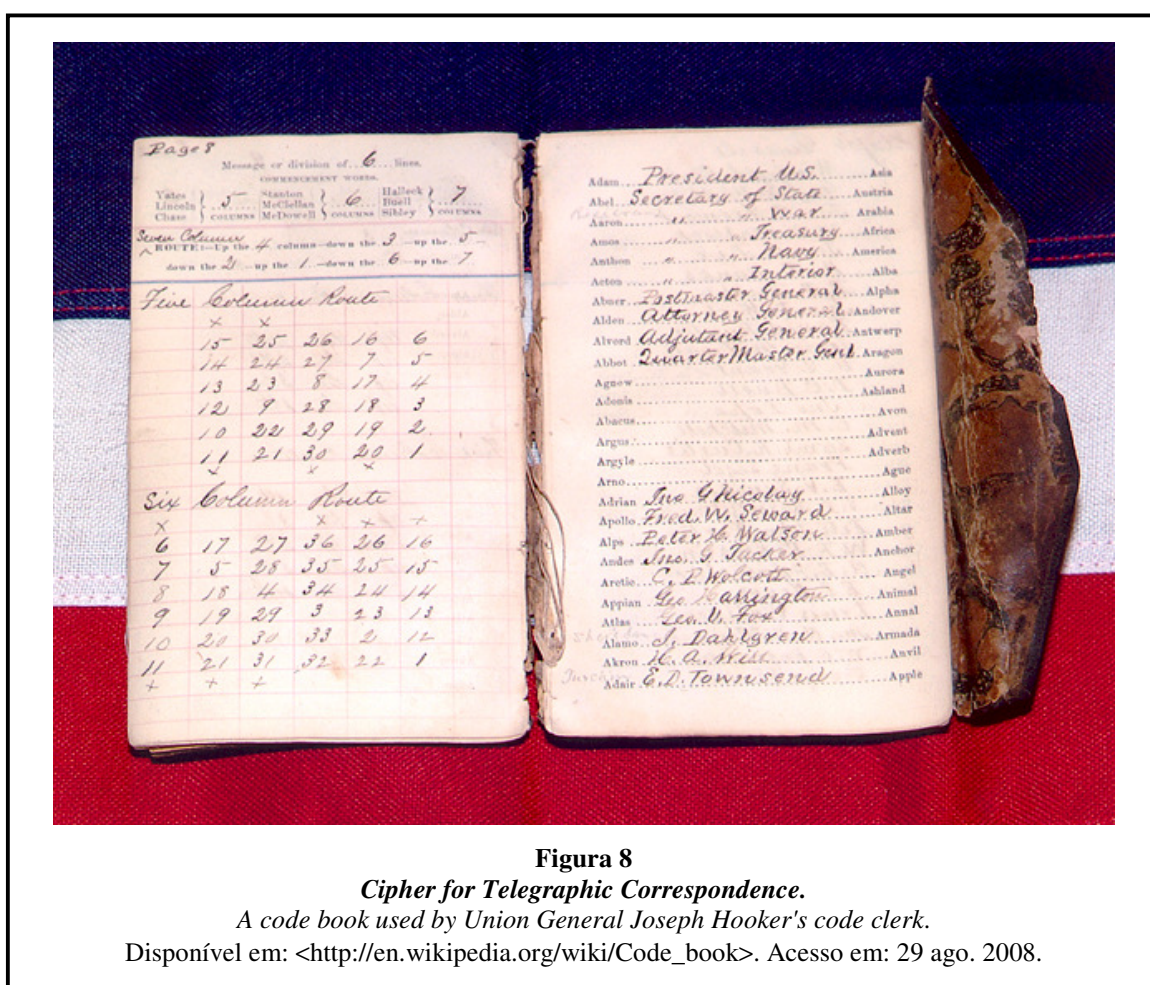 Page 8
Message or division of 6 lines.
COMMENCEMENT WORDS.
Yates Lincoln Chase } 5 COLUMNS Stanton McClellan McDowell } 6 COLUMNS Halleck Buell Sibley } 7 COLUMNS
Seven Column
ROUTE:—Up the 4 column—down the 3—up the 5—
down the 2—up the 1—down the 6—up the 7
Five Column Route
x x
15 25 26 16 6
14 24 27 7 5
13 23 8 17 4
12 9 28 18 3
10 22 29 19 2
11 21 30 20 1
x x x
Six Column Route
x x x x
6 17 27 36 26 16
7 5 28 35 25 15
8 18 4 34 24 14
9 19 29 3 23 13
10 20 30 33 2 12
11 21 31 32 22 1
x x x
Adam President U.S. Asia
Abel Secretary of State Austria
Aaron " " War Arabia
Amos " " Treasury Africa
Anthon " " Navy America
Acton " " Interior Alba
Abner Postmaster General Alpha
Alden Attorney General Andover
Alvord Adjutant General Antwerp
Abbot Quarter Master Genl Aragon
Agnew Aurora
Adonis Ashland
Abacus Avon
Argus Advent
Argyle Adverb
Arno Ague
Adrian Jno G Nicolay Alloy
Apollo Fred. W. Seward Altar
Alps Peter H. Watson Amber
Andes Jno. G. Tucker Anchor
Arctic C. P. Wolcott Angel
Appian Geo Harrington Animal
Atlas Geo. V. Fox Annal
Alamo J. Dahlgren Armada
Akron H. A. Anvil
Adair E.D. Townsend Apple
Figura 8
Cipher for Telegraphic Correspondence.
A code book used by Union General Joseph Hooker's code clerk.
Disponível em: <http://en.wikipedia.org/wiki/Code_book>. Acesso em: 29 ago. 2008.